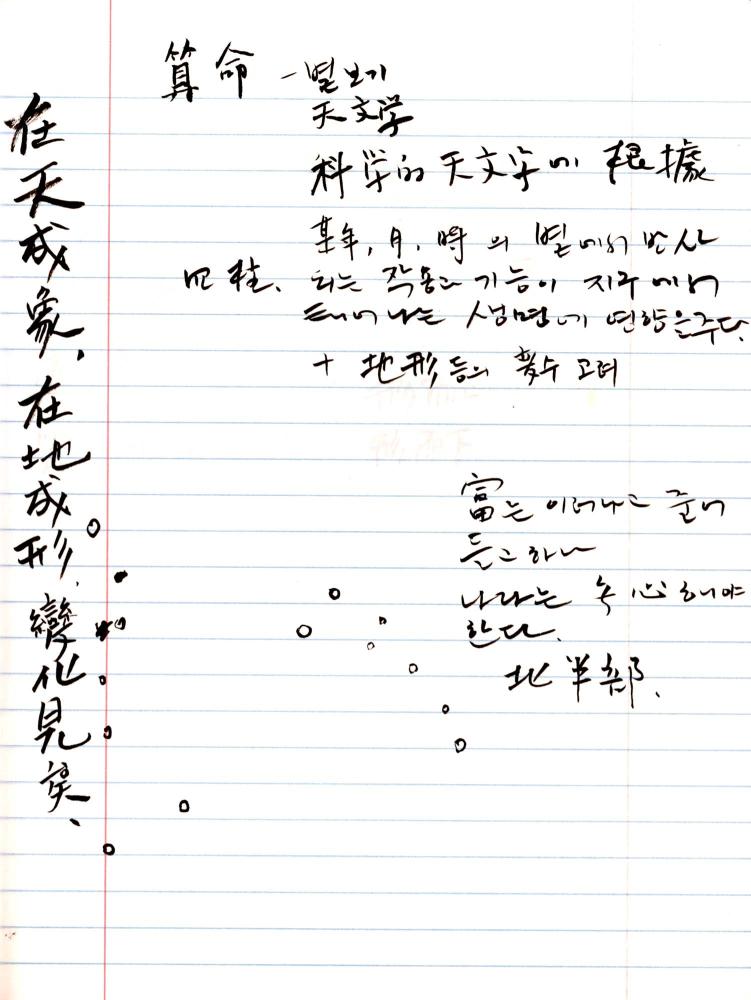 算命 - 별보기
天文学
科学的 天文学에 根據
某年, 月, 時 의 별에서 반사
四柱. 되는 작용과 기능이 지구에서
태어나는 생명에 영향을주다.
+ 地形 등의 変수 고려
在天成象, 在地成形, 變化見矣、
富는 이더나 줄어
들고 하나
나라는 心 해야
한다.
北半部.